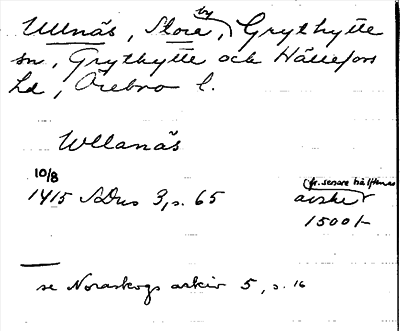 by
Ullnäs, Stora, Grythytte
sn, Grythytte och Hällefors
hd, Örebro l.
Ullanäs
10/8
1415 SDns 3, s. 65
fr. senare hälften av
avskr
1500/-
se Noraskogs arkiv 5, s. 16